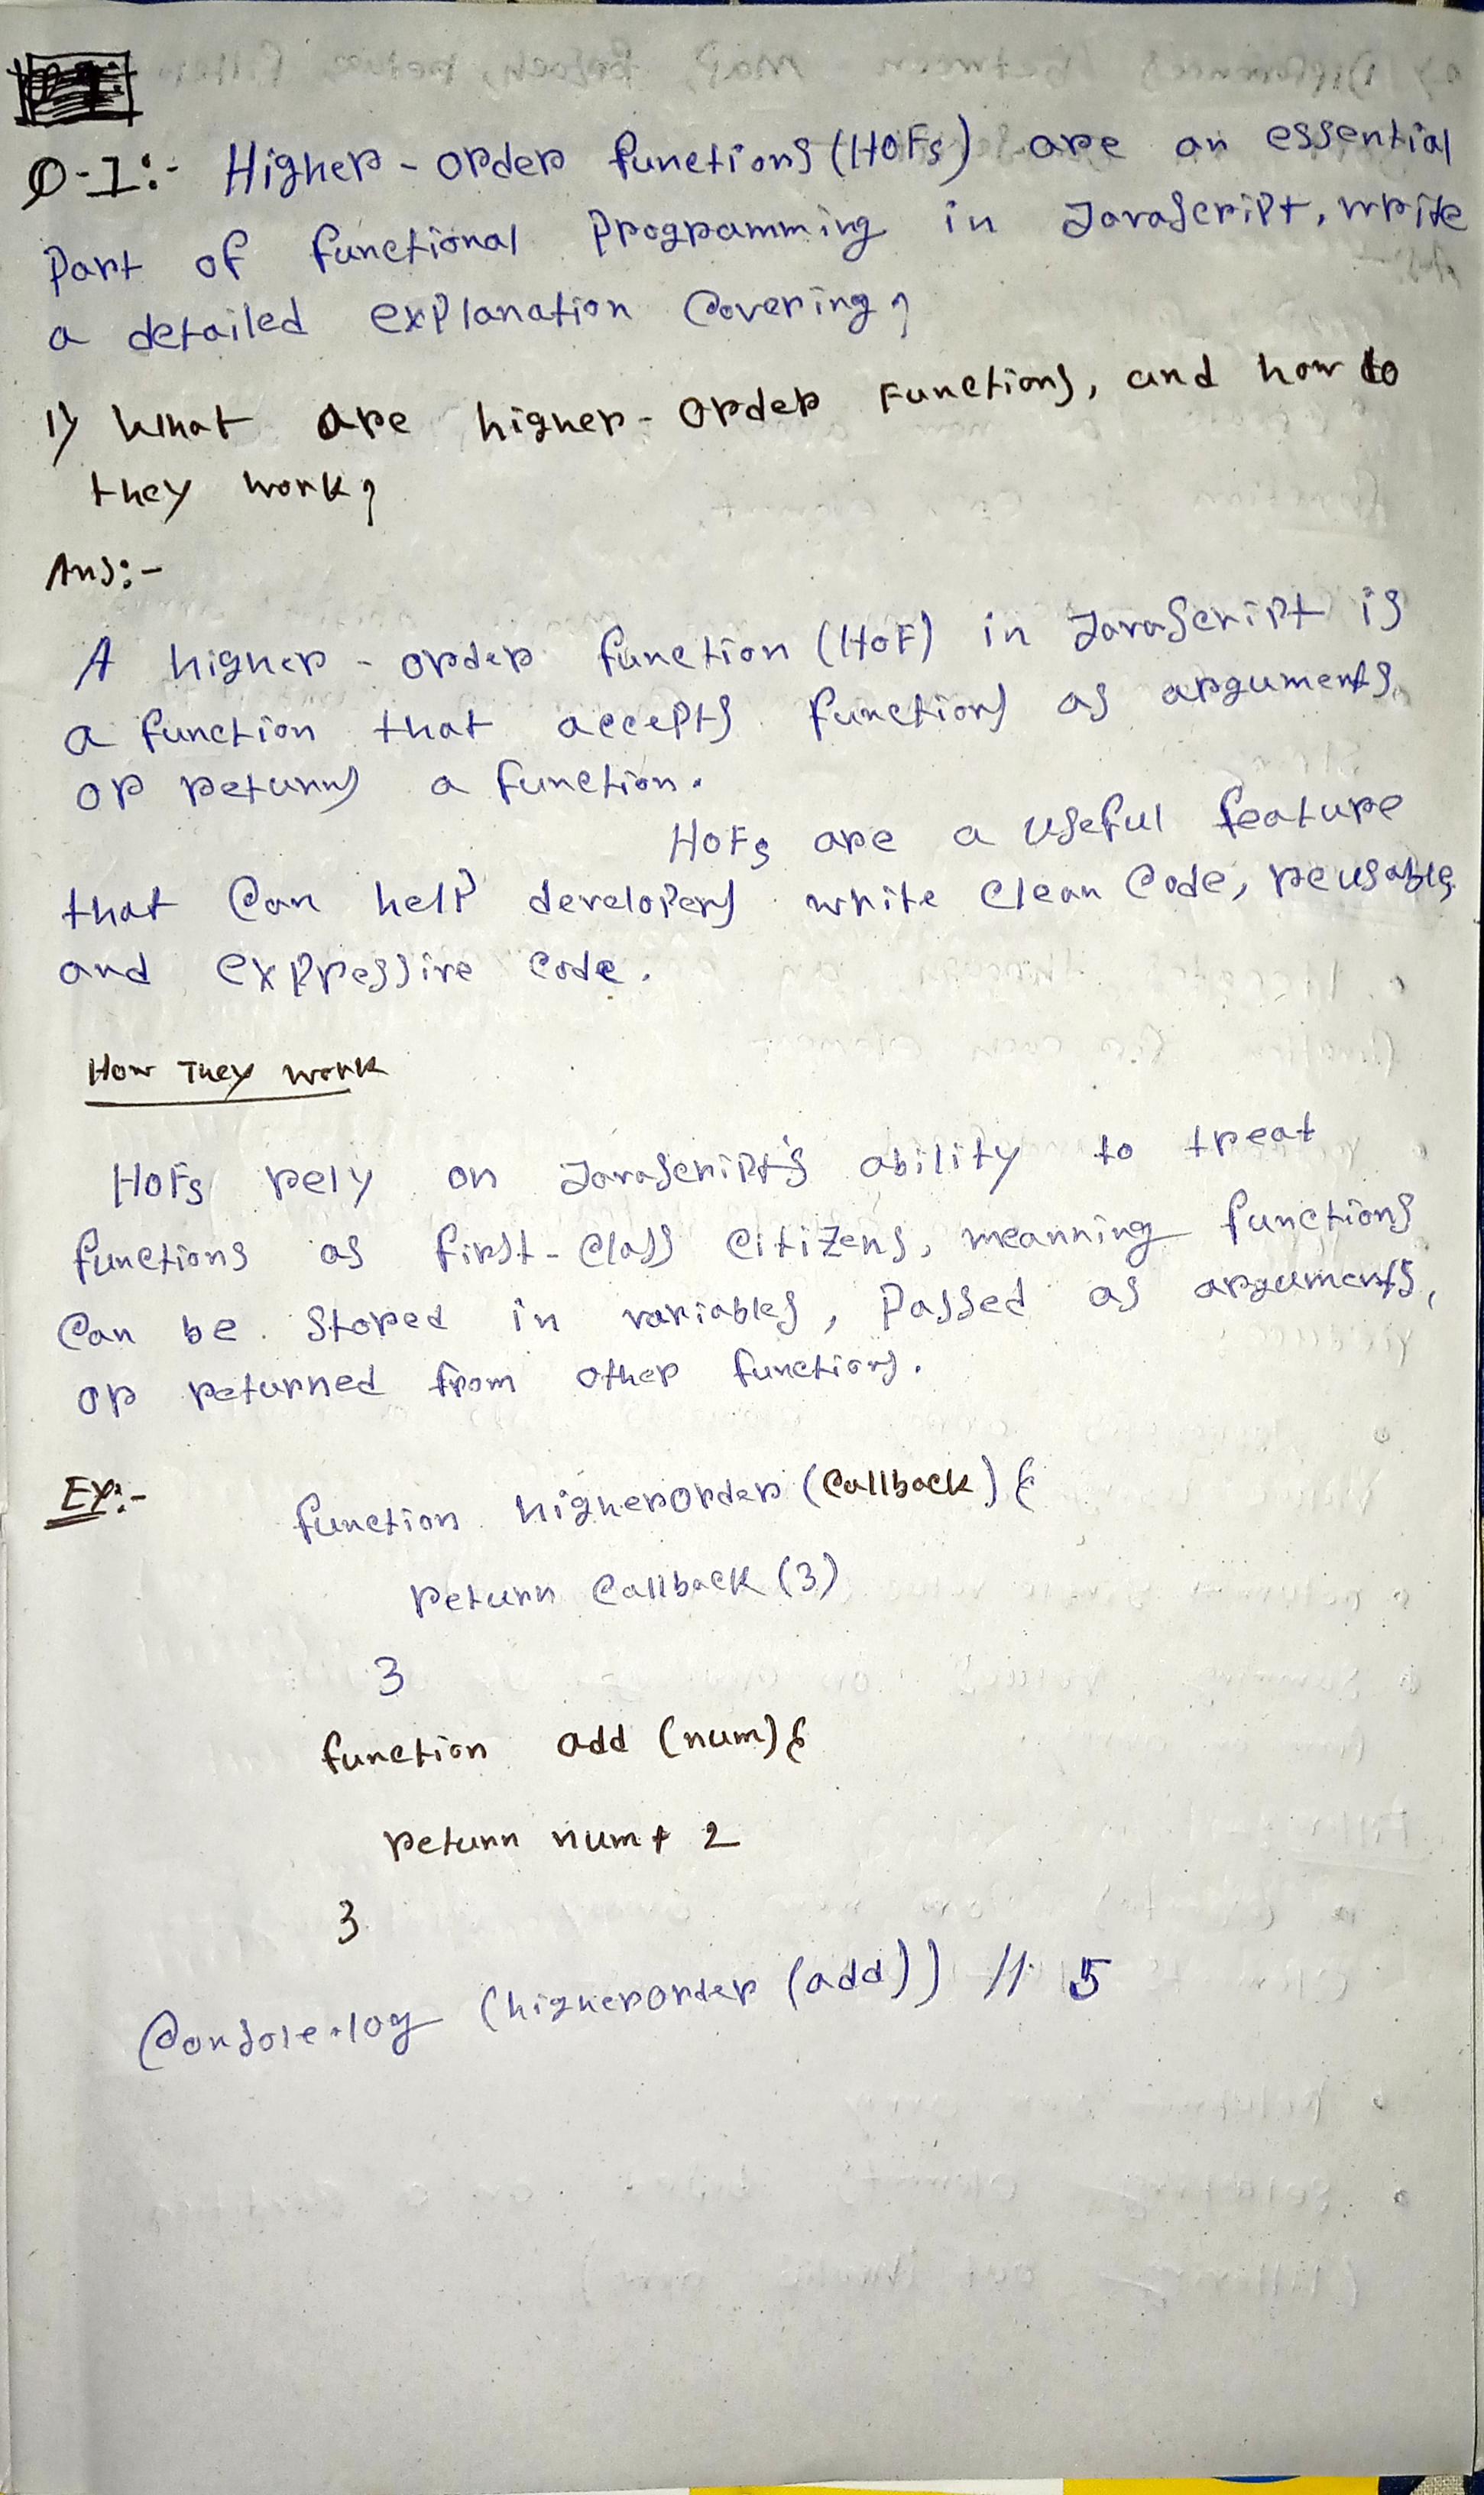 Q-1:- Higher-order functions (HOFs) are an essential
Part of functional programming in JavaScript, write
a detailed explanation Covering,
1) What are higher-order Functions, and how do
they work?
Ans:-
A higher-order function (HOF) in JavaScript is
a function that accepts functions as arguments
or returns a function.
HOFs are a useful feature
that Can help developers write Clean Code, reusable
and expressive code.
How They work
HOFs rely on JavaScript's ability to treat
functions as first-class citizens, meanning functions
Can be stored in variables, Passed as arguments,
or returned from other functions.
EX:-
function higherorder (Callback) {
return Callback (3)
}
function add (num) {
return num + 2
}
Console.log (higherorder (add)) // 5